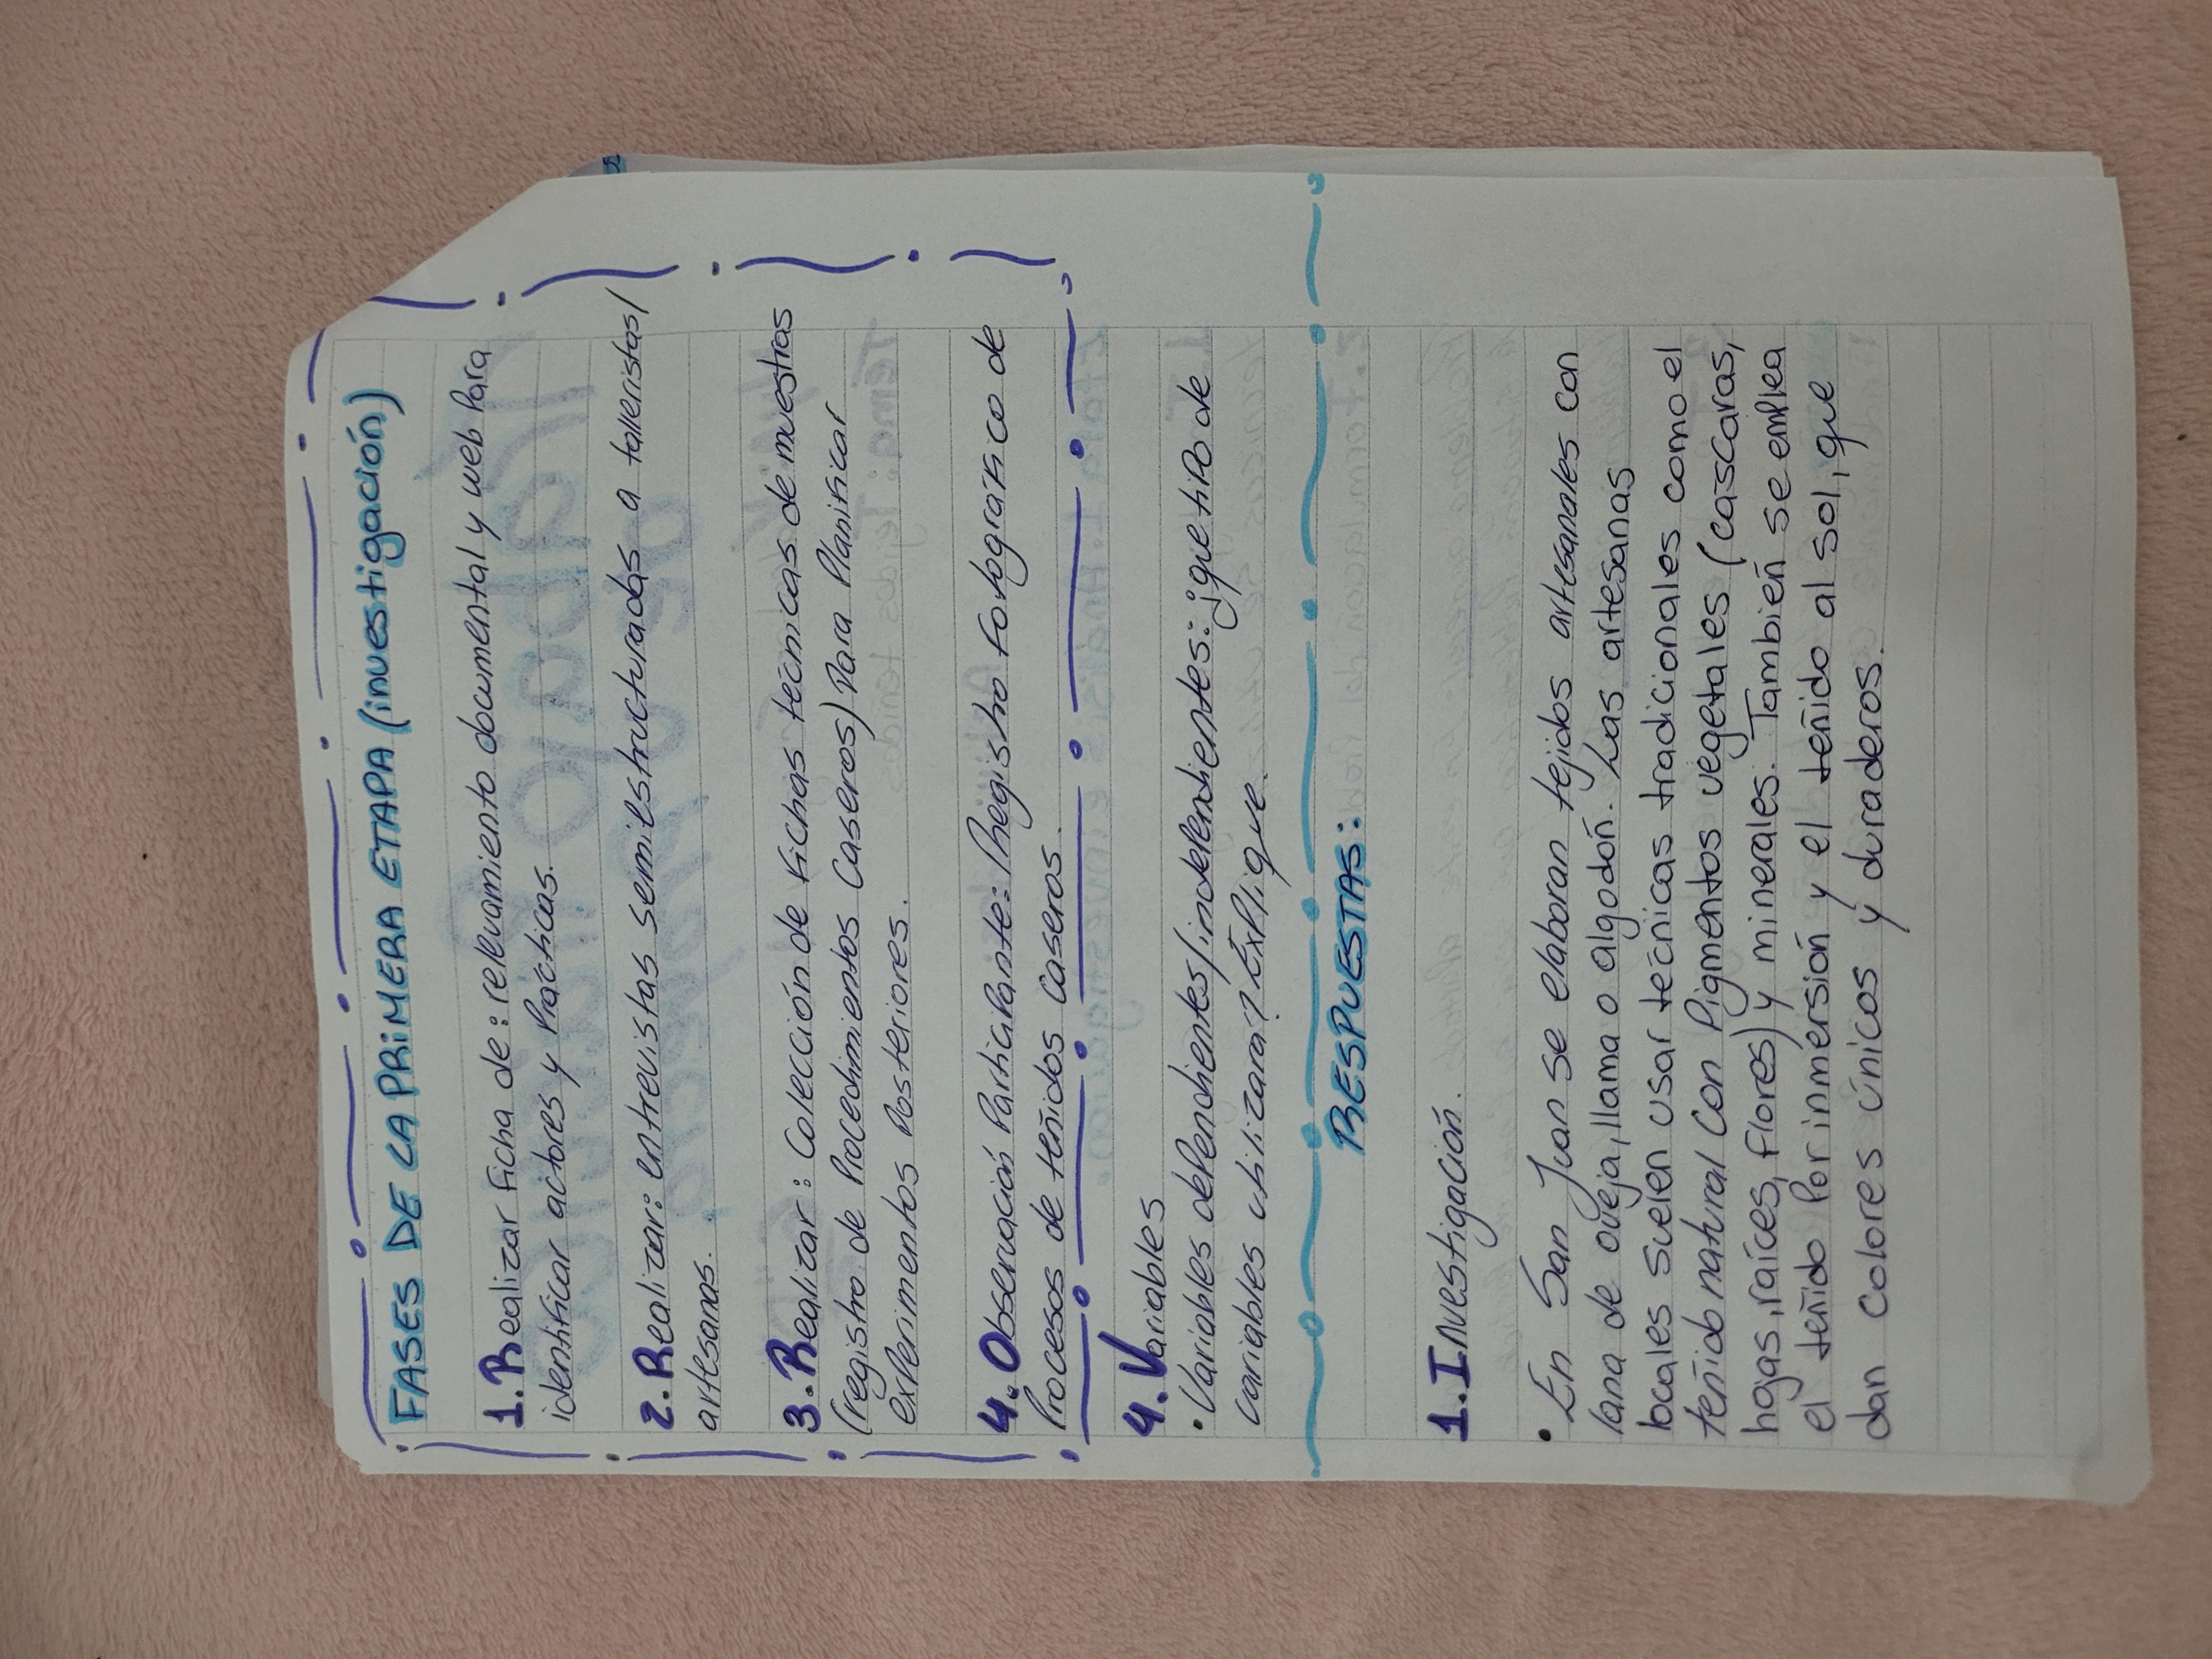 FASES DE LA PRIMERA ETAPA (investigación)
1. Realizar Ficha de: relevamiento documental y web Para
identificar actores y Prácticas.
2. Realizar: entrevistas semiestructuradas a talleristas/
artesanas.
3. Realizar: Colección de Fichas tecnicas de muestras
(registro de Procedimientos Caseros) Para Planificar
experimentos Posteriores.
4. Observación Participante: Registro Fotografico de
Procesos de teñidos caseros.
4. Variables
• Variables dependientes/independientes: ¿que tipo de
variables utilizara? Explique.
RESPUESTAS:
1. Investigación.
• En San Juan se elaboran tejidos artesanales con
lana de oveja, llama o algodón. Las artesanas
locales suelen usar tecnicas tradicionales como el
teñido natural con Pigmentos vegetales (cascaras,
hojas, raíces, flores) y minerales. También se emplea
el teñido Por inmersión y el teñido al sol, que
dan colores únicos y duraderos.